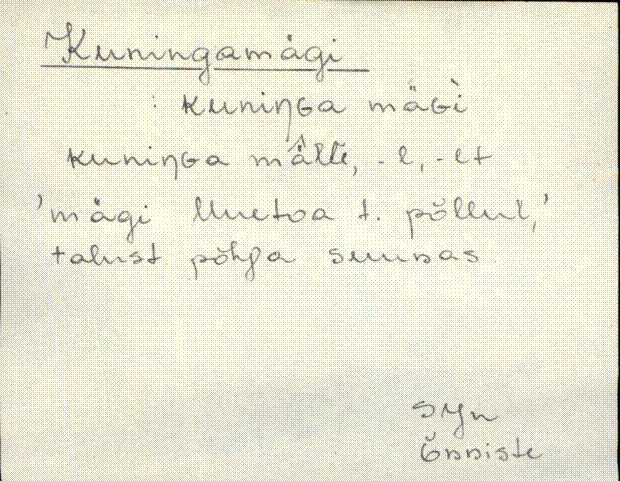 Kuningamägi
: kuniŋGa mäGì
kuniŋGa mä̂lle, -l, -lt
'mägi Uuetoa t. põllul,'
talust põhja suunas.
Syn
Õnniste